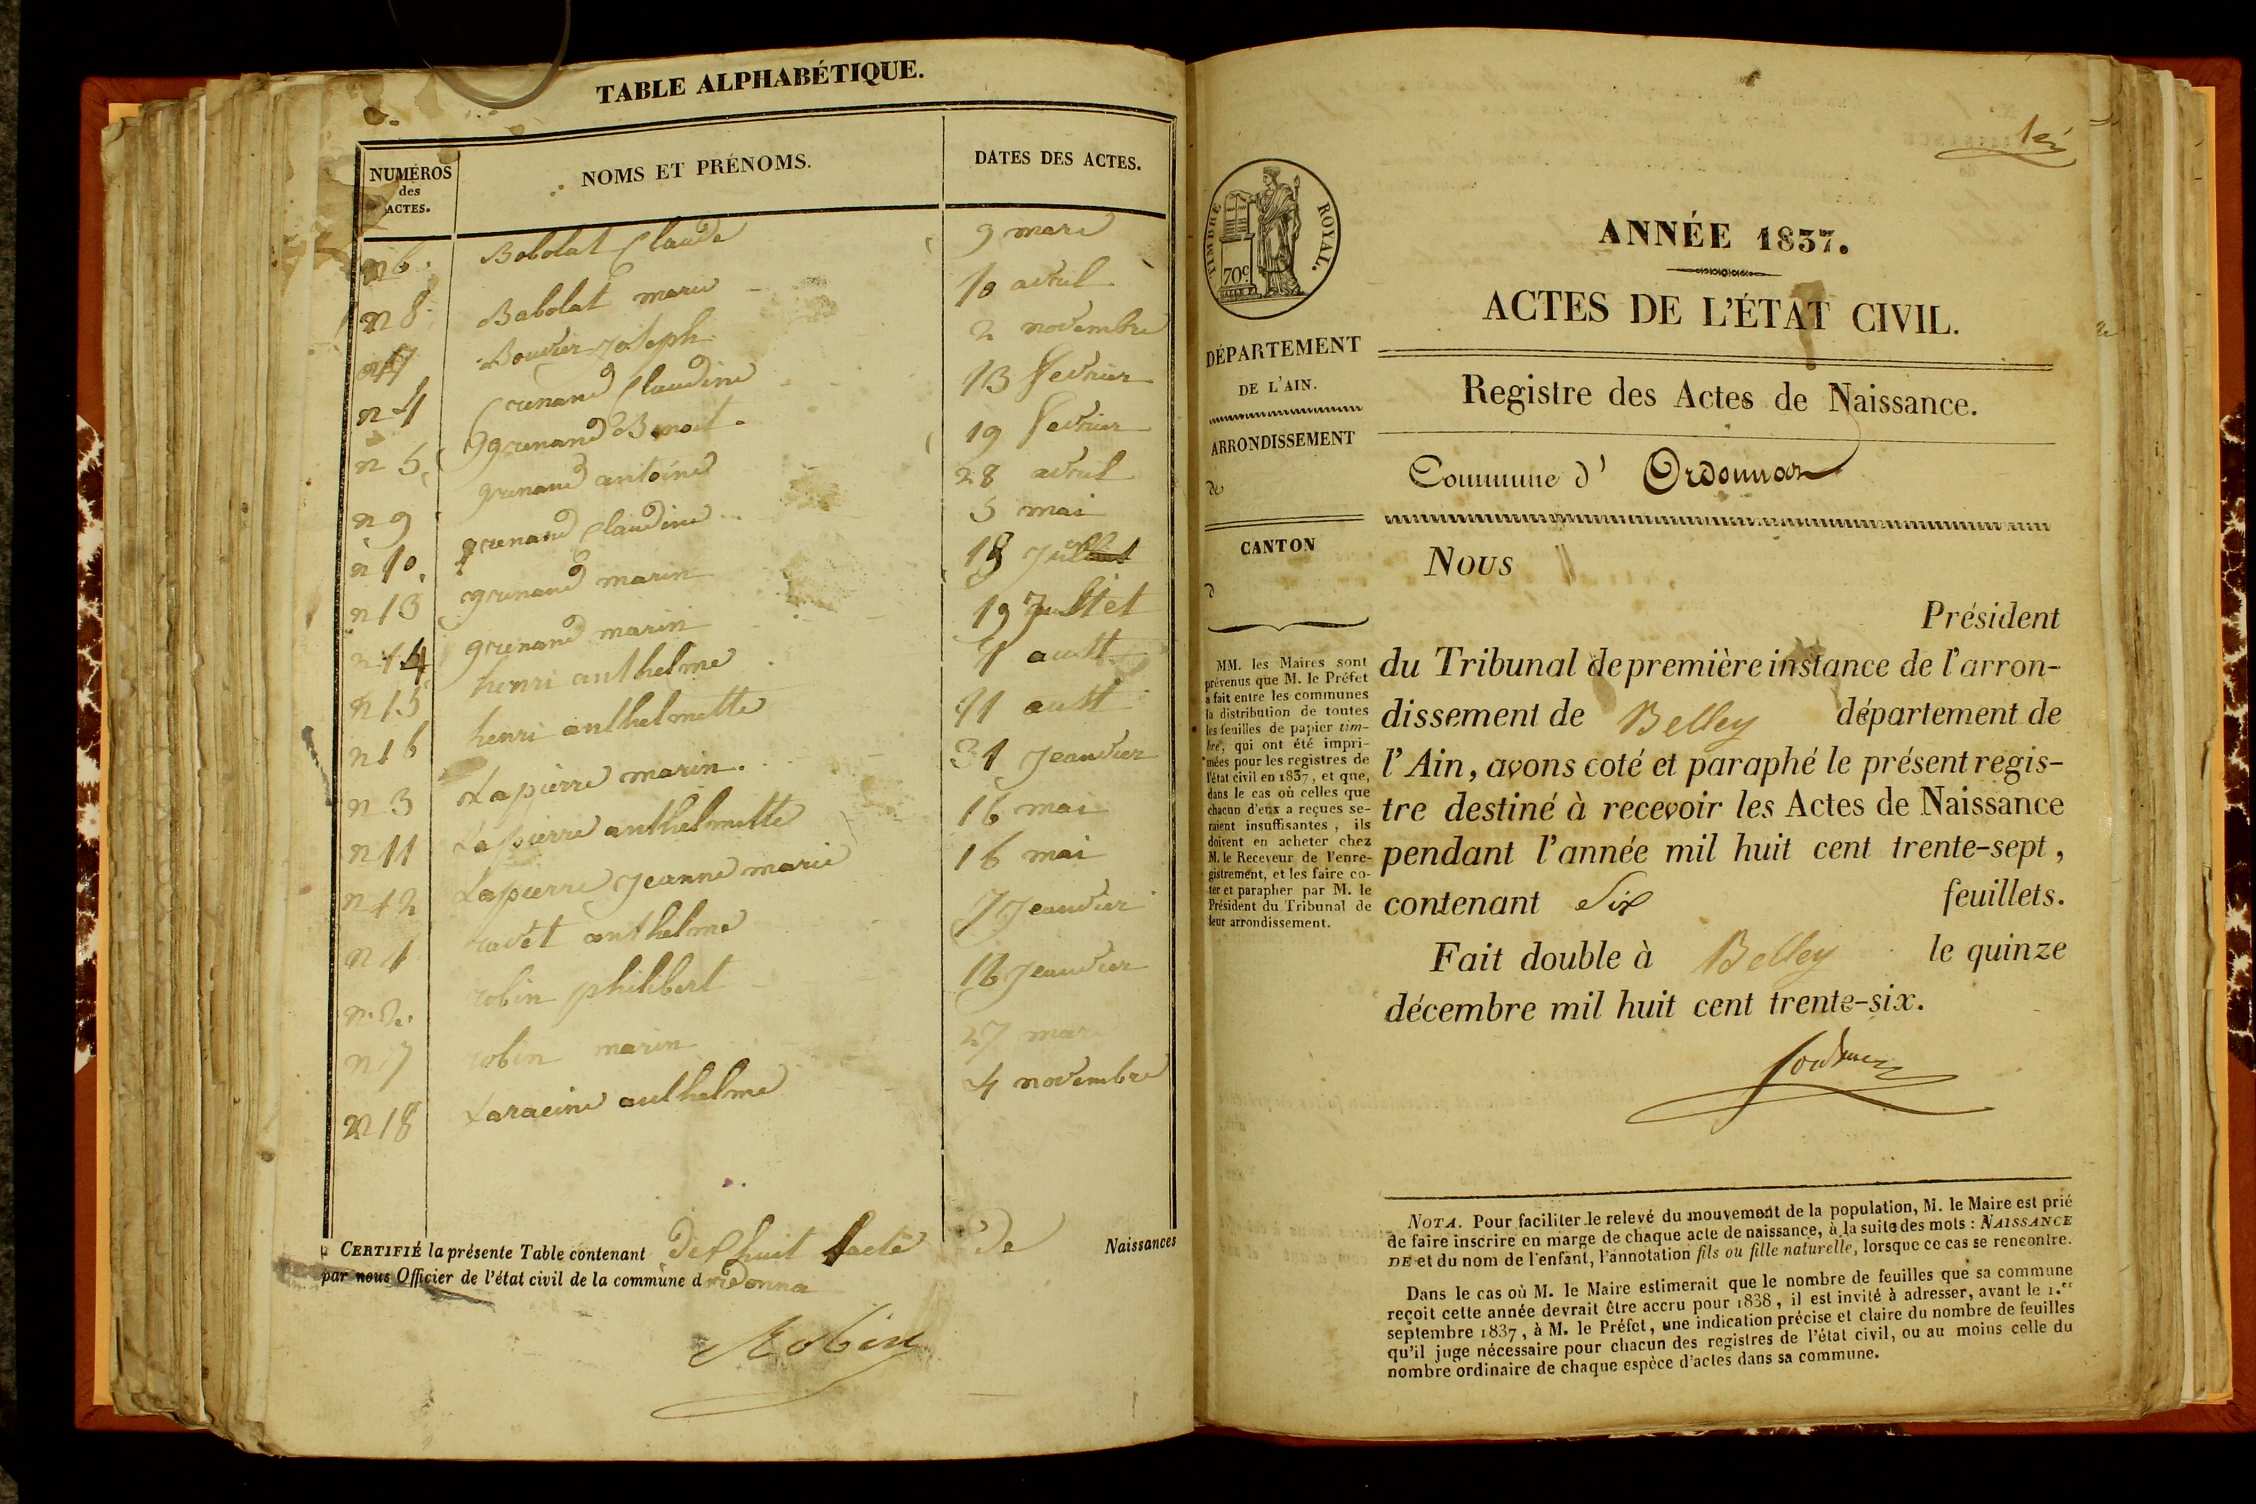 TABLE ALPHABÉTIQUE.
NUMÉROS des ACTES. NOMS ET PRÉNOMS. DATES DES ACTES.
n 6 Bobolat Claude 9 mars
n 8 Babolat marie 10 avril
n 17 Bouvier joseph 2 novembre
n 4 grenand Claudine 13 fevrier
n 5 grenand Benoit 19 fevrier
n 9 grenand antoine 28 avril
n 10 grenand Claudine 5 mai
n 13 grenand marin 18
n 14 grenand marin 19
n 15 henri anthelme
n 16 henri anthelmette 11
n 3 Lapierre marin 31 Jeanvier
n 11 Lapierre anthelmette 16 mai
n 12 Lapierre Jeanne marie 16 mai
n 1 ravet anthelme 7 Jeanvier
n 2 robin philibert 16 Jeanvier
n 7 robin marin 27 mar
n 18 Laracine anthelme 4 novembre
CERTIFIÉ la présente Table contenant huit acte de Naissances
par nous Officier de l'état civil de la commune d ordonna
Robin
1er
TIMBRE ROYAL.
70c
ANNÉE 1837.
ACTES DE L'ÉTAT CIVIL.
Registre des Actes de Naissance.
Commune d' Ordonnaz
DÉPARTEMENT
DE L'AIN.
ARRONDISSEMENT
de
CANTON
d
MM. les Maires sont
prévenus que M. le Préfet
a fait entre les communes
la distribution de toutes
les feuilles de papier tim-
bré, qui ont été impri-
mées pour les registres de
l'état civil en 1837, et que,
dans le cas où celles que
chacun d'eux a reçues se-
raient insuffisantes, ils
doivent en acheter chez
M. le Receveur de l'enre-
gistrement, et les faire co-
ter et parapher par M. le
Président du Tribunal de
leur arrondissement.
Nous
Président
du Tribunal de première instance de l'arron-
dissement de Belley département de
l'Ain, avons coté et paraphé le présent regis-
tre destiné à recevoir les Actes de Naissance
pendant l'année mil huit cent trente-sept,
contenant Six feuillets.
Fait double à Belley le quinze
décembre mil huit cent trente-six.
NOTA. Pour faciliter le relevé du mouvement de la population, M. le Maire est prié
de faire inscrire en marge de chaque acte de naissance, à la suite des mots : NAISSANCE
DE et du nom de l'enfant, l'annotation fils ou fille naturelle, lorsque ce cas se rencontre.
Dans le cas où M. le Maire estimerait que le nombre de feuilles que sa commune
reçoit cette année devrait être accru pour 1838, il est invité à adresser, avant le 1.er
septembre 1837, à M. le Préfet, une indication précise et claire du nombre de feuilles
qu'il juge nécessaire pour chacun des registres de l'état civil, ou au moins celle du
nombre ordinaire de chaque espèce d'actes dans sa commune.